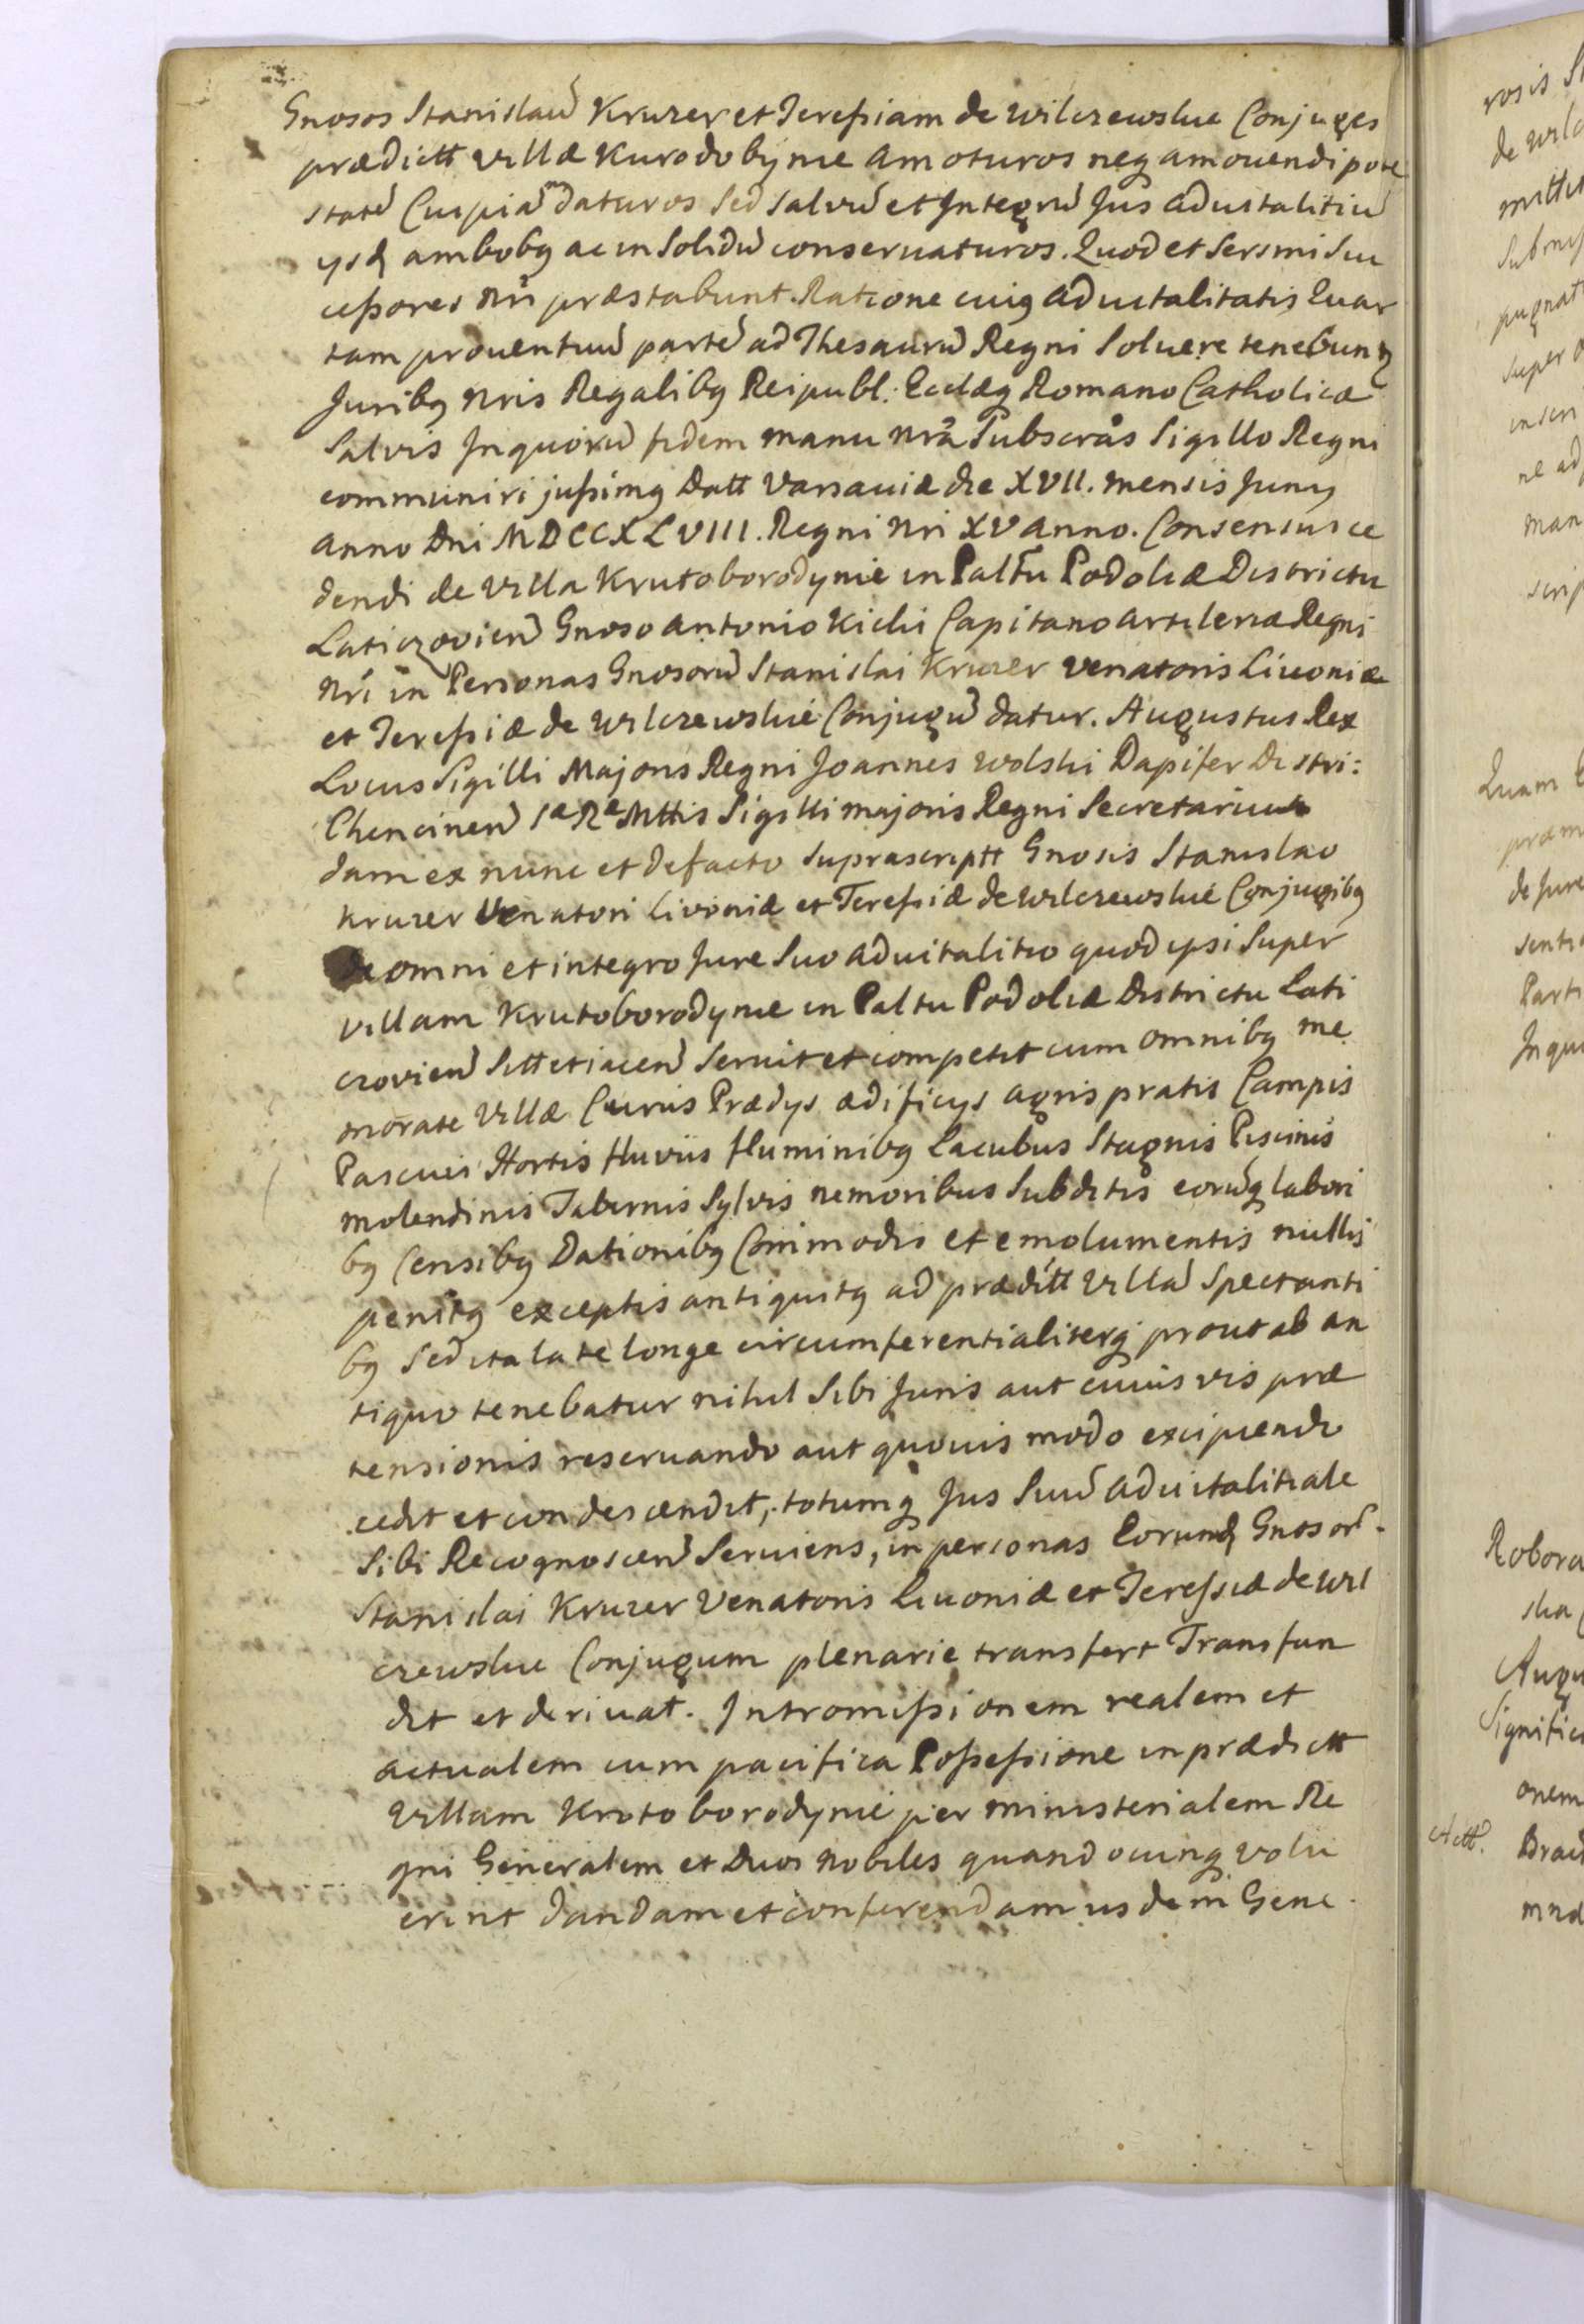 Gnosos Stanislaū Kruzer et Teressiam de Wilczewskie Conjuges
prædictt Villæ Kurodobynie amoturos neq amovendi pote
statē Cuipiam daturos Sed Salvū et Integrū Jus advitalitiū
ysdē ambobq ac in Solidū conservaturos. Quod et Sermi Suc
cessores Nri præstabunt. Ratione cuiq advitalitatis Quar
tam proventuū partē ad Thesaurū Regni Solvere tenebunt
Juribq Nris Regalibq Reipubl: Ecclæq Romano Catholicæ
Salvis Jn quorū fidem manu Nra Subscras Sigillo Regni
communiri jussimq Datt Varsaviæ die XVII. mensis Juny
anno Dni MDCCXLVIII. Regni Nri XV anno. Consensus ce
dendi de Villa Krutoborodynie in Paltu Podoliæ Districtu
Laticzovien Gnoso Antonio Kicki Capitano Artileriæ Regni
Nri in Personas Gnosorū Stanislai Kruzer Venatoris Livoniæ
et Teressiæ de Wilczewskie Conjugū datur. Augustus Rex
Locus Sigilli Majoris Regni Joannes Wolski Dapifer Distri:
Chencinen Sæ Ræ Mttis Sigilli majoris Regni Secretarius
dam ex nunc et defacto Suprascriptt Gnosis Stanislao
Kruzer Venatori Livoniæ et Teressiæ de Wilczewskie Conjugibq
de omni et integro Jure Suo advitalitio quod ipsi Super
Villam Krutoborodynie in Paltu Podoliæ Districtu Lati
czovien Sitt et iacen Servit et competit cum omnibq me
morate Villæ Curiis Prædys ædificys agris pratis Campis
Pascuis Hortis fluviis fluminibq Lacubus Stagnis Piscinis
molendinis Tabernis Sylvis nemoribus Subditis eorūq labori
bq Censibq Dationibq Commodis et emolumentis nullis
penitq exceptis antiquitq ad prædictt Villā Spectanti
bq Sed ita late longe circumferentialiterq prout ab an
tiquo tenebatur nihil Sibi Juris aut cuiusvis præ
tensionis reservando aut quovis modo excipiendo
cedit et condescendit, totumq Jus Suū advitalitiale
Sibi Recognoscen Serviens, in personas Eorundē Gnosorū
Stanislai Kruzer Venatoris Livoniæ et Teressiæ de Wil
czewskie Conjugum plenarie transfert Transfun
dit et derivat. Intromissionem realem et
actualem cum pacifica Possessione in prædictt
Villam Krotoborodynie per ministerialem Re
gni Generalem et Duos Nobiles quandocunq volu
erint dandam et conferendam iisdem Gene
rosis
de Wilc
mittit
pugnat
super
man
scrip
Quam
præm
de Jure
Part
Robora
Augu
Signific
onem
Actt.